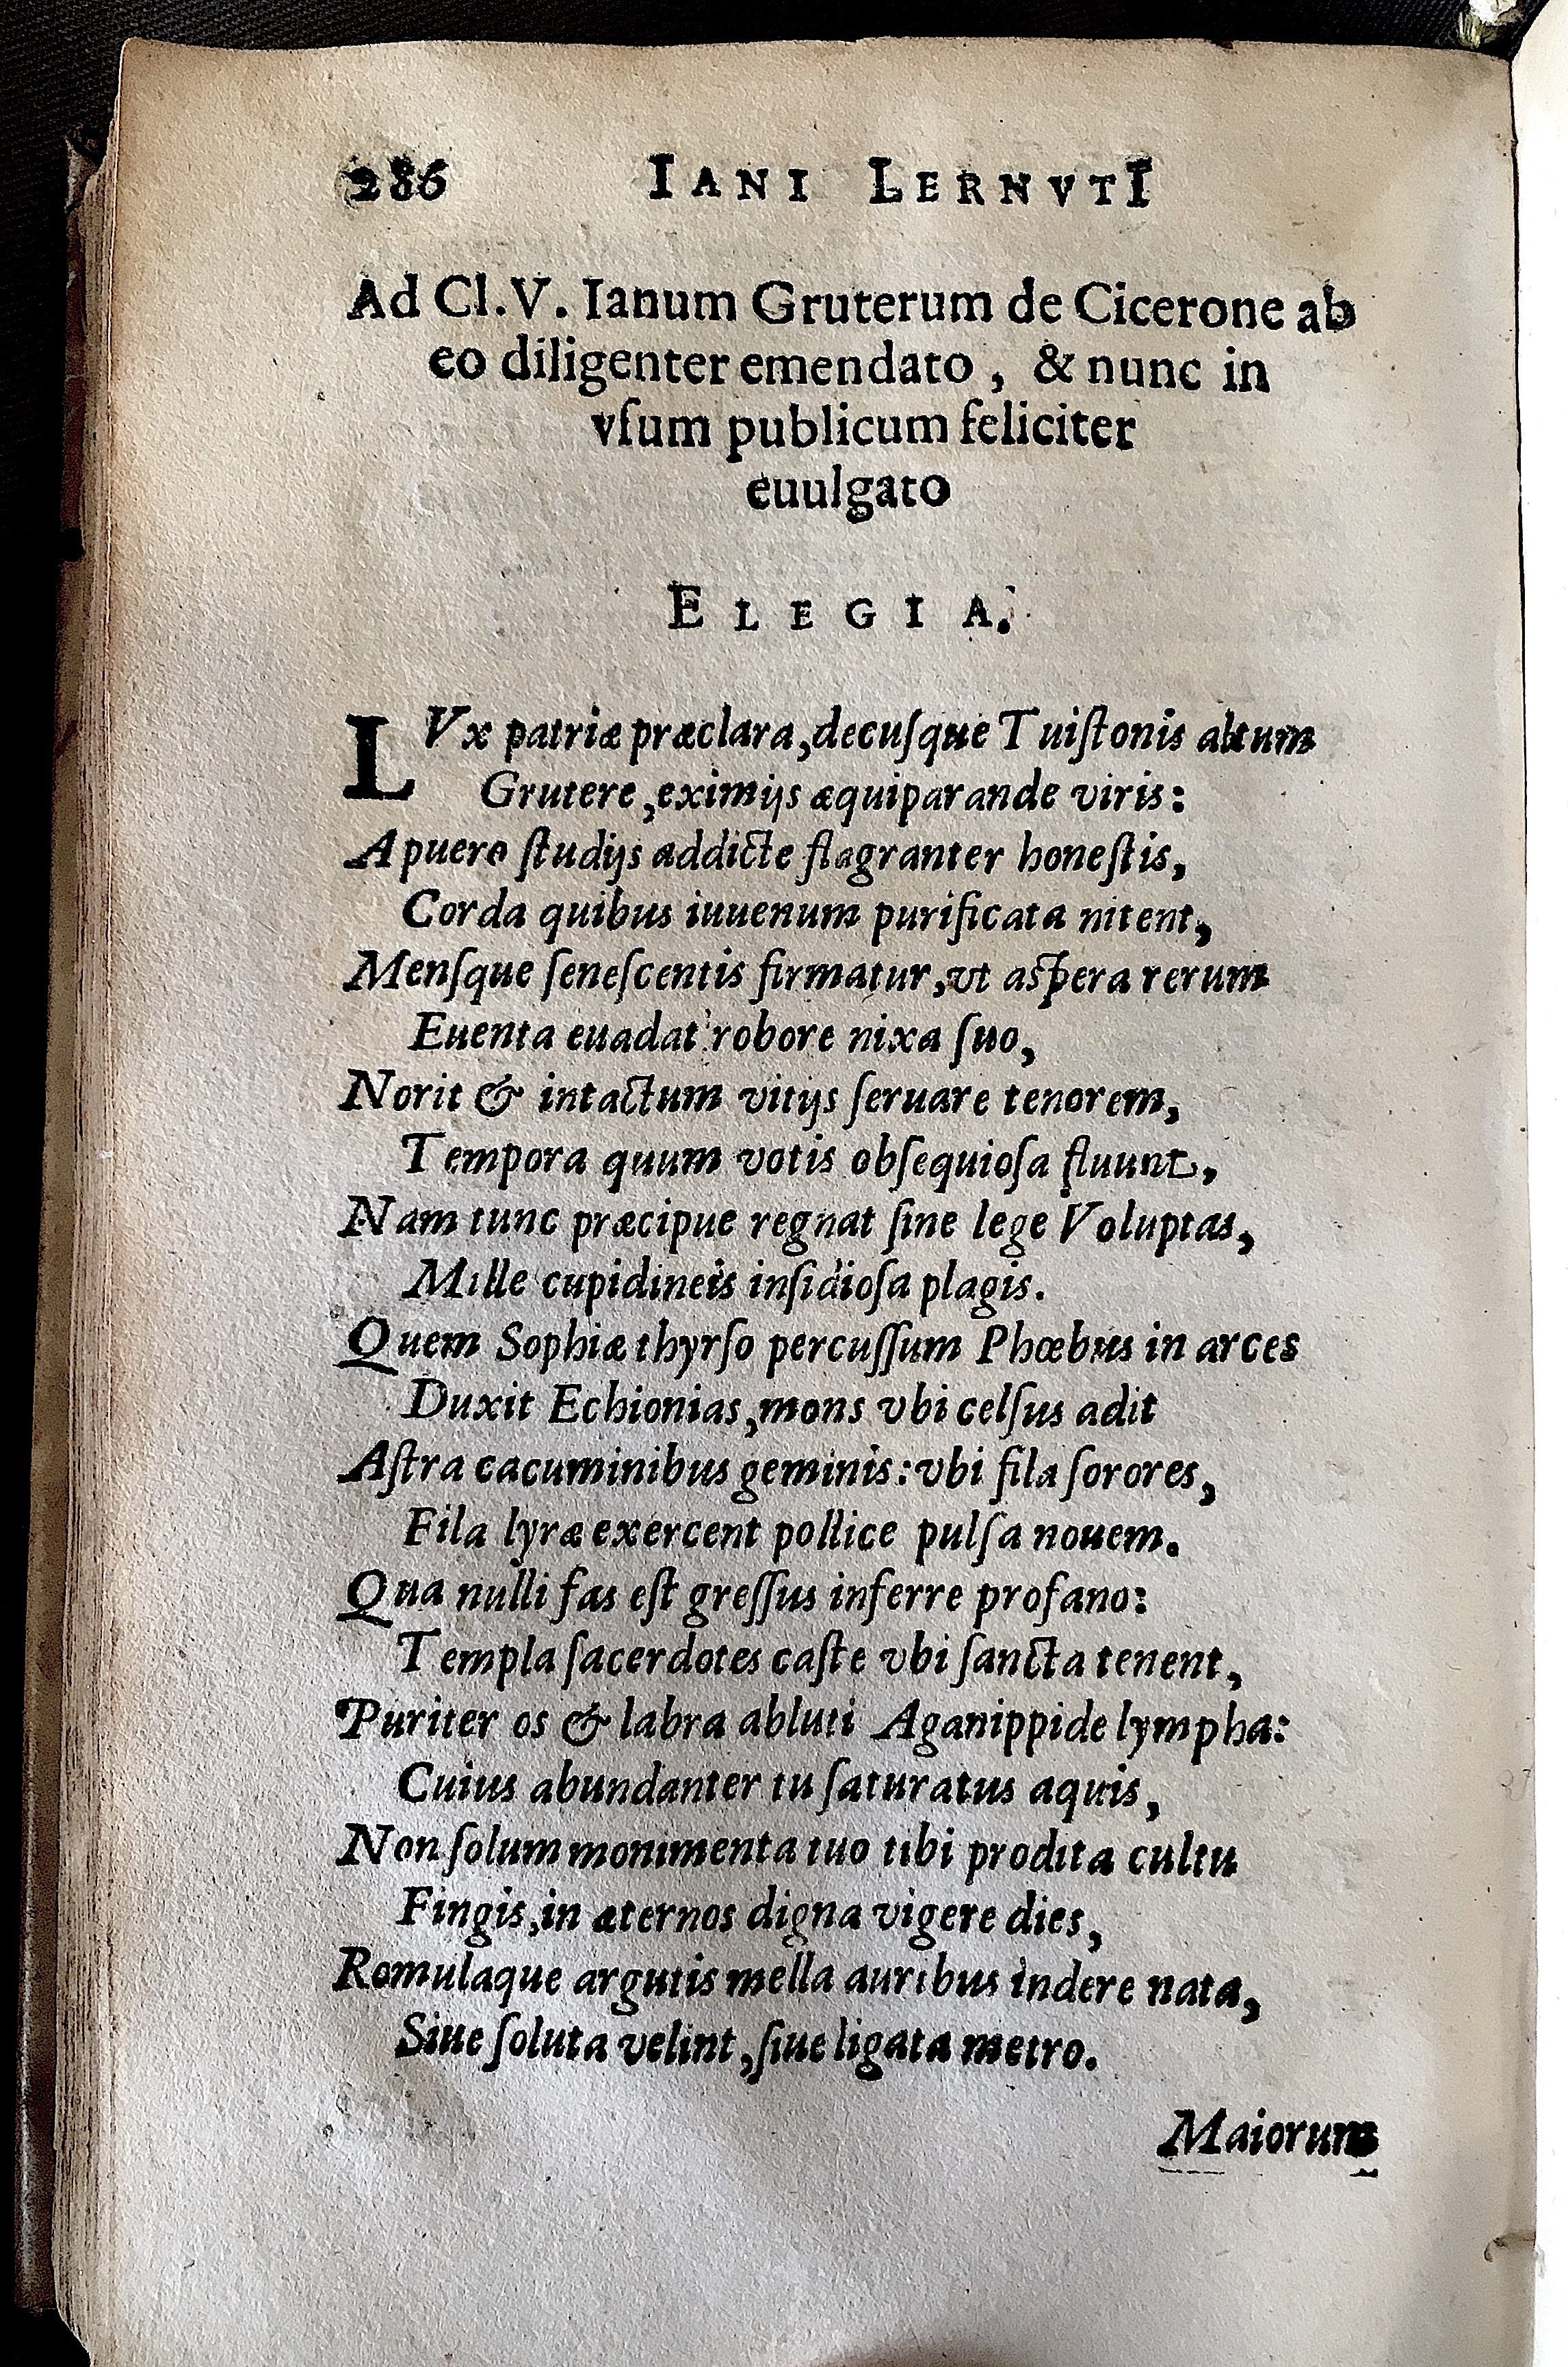 286 IANI LERNVTI
Ad Cl. V. Ianum Gruterum de Cicerone ab
eo diligenter emendato, & nunc in
vſum publicum feliciter
euulgato
ELEGIA.
LVx patriæ præclara, decuſque Tuiſtonis altum
Grutere, eximijs æquiparande viris:
A puero ſtudijs addicte flagranter honeſtis,
Corda quibus iuuenum purificata nitent,
Menſque ſeneſcentis firmatur, vt aſpera rerum
Euenta euadat robore nixa ſuo,
Norit & intactum vitijs ſeruare tenorem,
Tempora quum votis obſequioſa fluunt,
Nam tunc præcipue regnat ſine lege Voluptas,
Mille cupidineis inſidioſa plagis.
Quem Sophiæ thyrſo percuſſum Phœbus in arces
Duxit Echionias, mons vbi celſus adit
Aſtra cacuminibus geminis: vbi fila ſorores,
Fila lyræ exercent pollice pulſa nouem.
Qua nulli fas eſt greſſus inferre profano:
Templa ſacerdotes caſte vbi ſancta tenent,
Puriter os & labra abluti Aganippide lympha:
Cuius abundanter tu ſaturatus aquis,
Non ſolum monimenta tuo tibi prodita cultu
Fingis, in æternos digna vigere dies,
Romulaque argutis mella auribus indere nata,
Siue ſoluta velint, ſiue ligata metro.
Maiorum